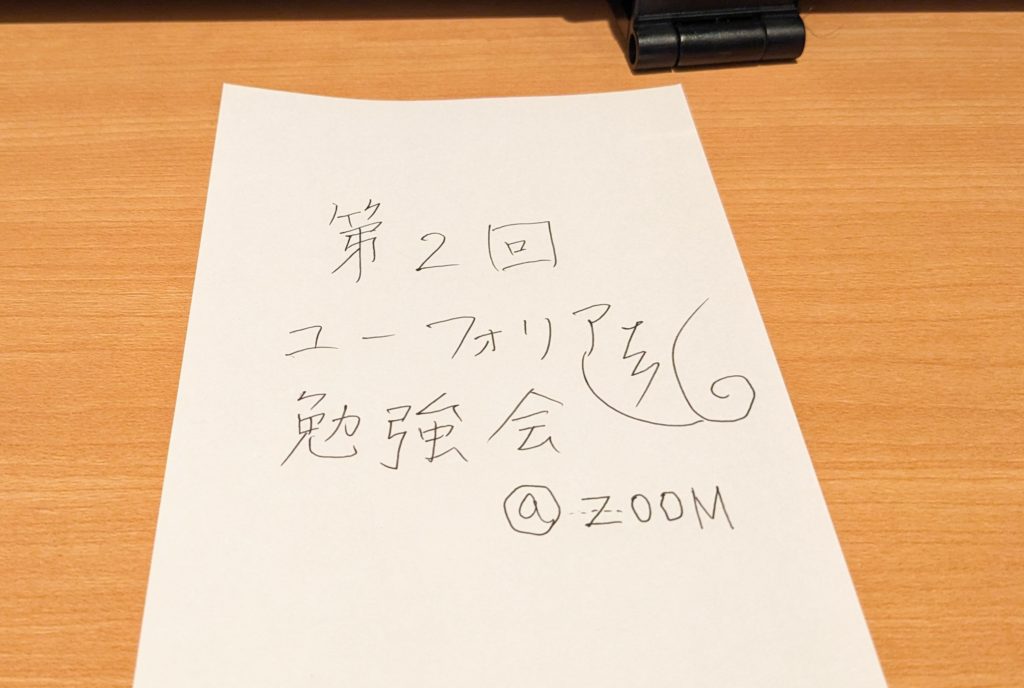 第2回
ユーフォリア
勉強会
@ZOOM